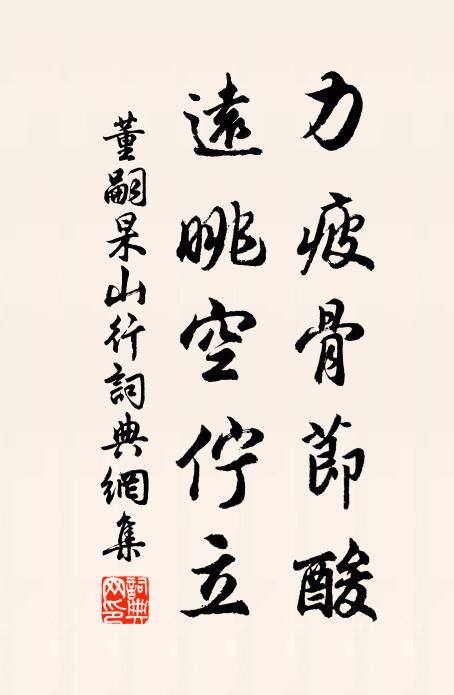 力疲骨節酸
遠眺空佇立
董嗣杲山行詞典網集
詞典网印